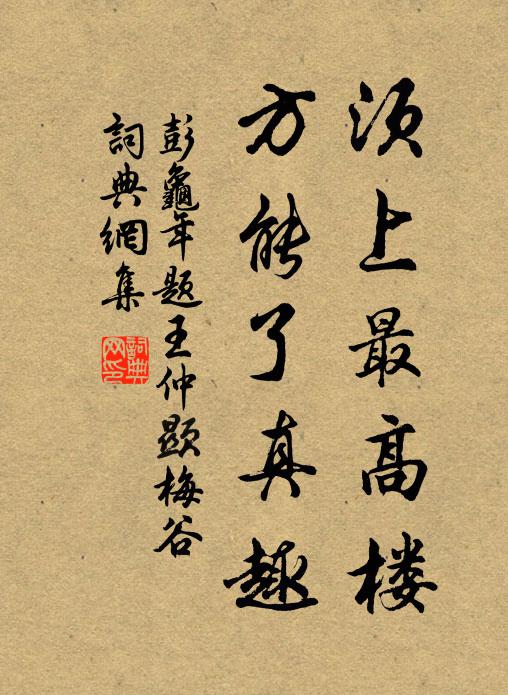 须上最高楼
方能了真趣
彭龜年题王仲顯梅谷
詞典網集
詞典网印